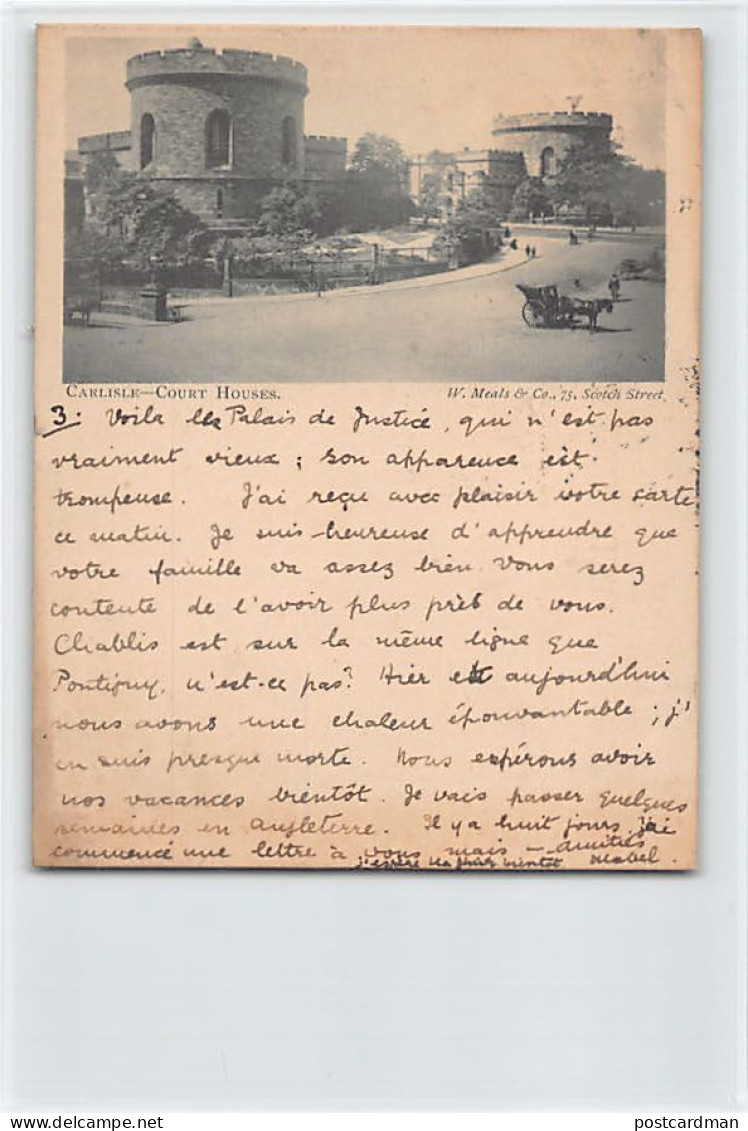 CARLISLE—COURT HOUSES.
W. Meals & Co., 75, Scotch Street
3: Voila les Palais de Justice, qui n'est pas
vraiment vieux ; son apparence est
trompeuse. J'ai reçu avec plaisir votre carte
ce matin. Je suis heureuse d'apprendre que
votre famille va assez bien. Vous serez
contente de l'avoir plus près de vous.
Chablis est sur la même ligne que
Pontigny, n'est-ce pas? Hier et aujourd'hui
nous avons une chaleur épouvantable ; j'
en suis presque morte. Nous espérons avoir
nos vacances bientôt. Je vais passer quelques
semaines en Angleterre. Il y a huit jours j'ai
commencé une lettre à vous mais — amitiés
j'espère bientôt Mabel.
postcardman